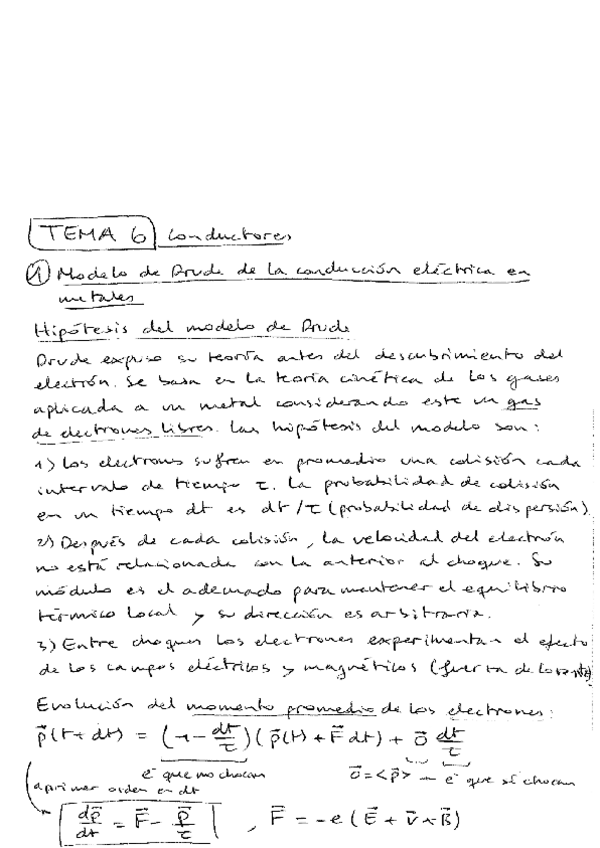 TEMA 6 Conductores
① Modelo de Drude de la conducción eléctrica en
metales
Hipótesis del modelo de Drude
Drude expuso su teoría antes del descubrimiento del
electrón. Se basa en la teoría cinética de los gases
aplicada a un metal considerando este un gas
de electrones libres. Las hipótesis del modelo son:
1) Los electrones sufren en promedio una colisión cada
intervalo de tiempo τ. La probabilidad de colisión
en un tiempo dt es dt/τ (probabilidad de dispersión)
2) Después de cada colisión, la velocidad del electrón
no está relacionada con la anterior al choque. Su
módulo es el adecuado para mantener el equilibrio
térmico local y su dirección es arbitraria.
3) Entre choques los electrones experimentan el efecto
de los campos eléctricos y magnéticos (fuerza de Lorentz)
Evolución del momento promedio de los electrones:
p⃗(t+dt) = (1 - dt/τ)(p⃗(t) + F⃗ dt) + 0⃗ dt/τ
e⁻ que no chocan 0⃗ = <p⃗> — e⁻ que sí chocan
a primer orden en dt
dp⃗/dt = F⃗ - p⃗/τ , F⃗ = -e (E⃗ + v⃗ × B⃗)